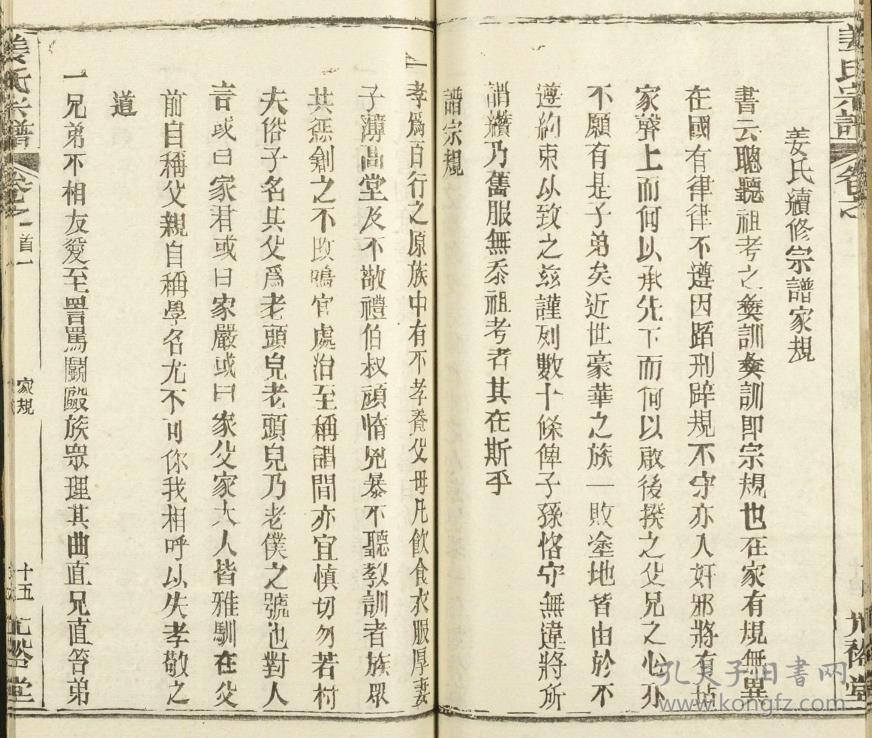 姜氏宗譜
卷之
姜氏續修宗譜家規
書云聰聽祖考之彝訓彝訓即宗規也在家有規無異
在國有律律不遵因蹈刑辟規不守亦入奸邪將有
家聲上而何以承先下而何以啟後揆之父兄之心亦
不願有是子弟矣近世豪華之族一敗塗地皆由於不
遵約束以致之玆謹列數十條俾子孫恪守無違將所
謂纘乃舊服無忝祖考者其在斯乎
譜宗規
一孝爲百行之原族中有不孝養父母凡飲食衣服厚妻
子薄高堂及不敬禮伯叔頑惰兇暴不聽教訓者族眾
共懲創之不改鳴官處治至稱謂間亦宜慎切勿若村
夫俗子名其父爲老頭兒老頭兒乃老僕之號也對人
言或曰家君或曰家嚴或曰家父家大人皆雅馴在父
前自稱父親自稱學名尤不可你我相呼以失孝敬之
道
一兄弟不相友愛至詈罵鬬毆族眾理其曲直兄直笞弟
姜氏宗譜
卷之首一
家規
十五
孔夫子旧书网
www.kongfz.com